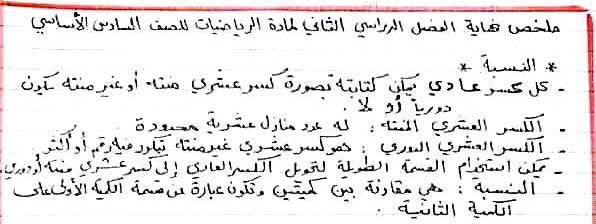 ملخص نهاية الفصل الدراسي الثاني لمادة الرياضيات للصف السادس الأساسي
* النسبة *
- كل كسر عادي يمكن كتابته بصورة كسر عشري منته أو غير منته يكون
دورياً أو لا .
- الكسر العشري المنته : له عدد منازل عشرية محدودة
- الكسر العشري الدوري : هو كسر عشري غير منته يتكرر فيه رقم أو أكثر
- يمكن استخدام القسمة الطويلة لتحويل الكسر العادي إلى كسر عشري منته أو دوري.
- النسبة : هي مقارنة بين كميتين وتكون عبارة عن قسمة الكمية الأولى على
الكمية الثانية .